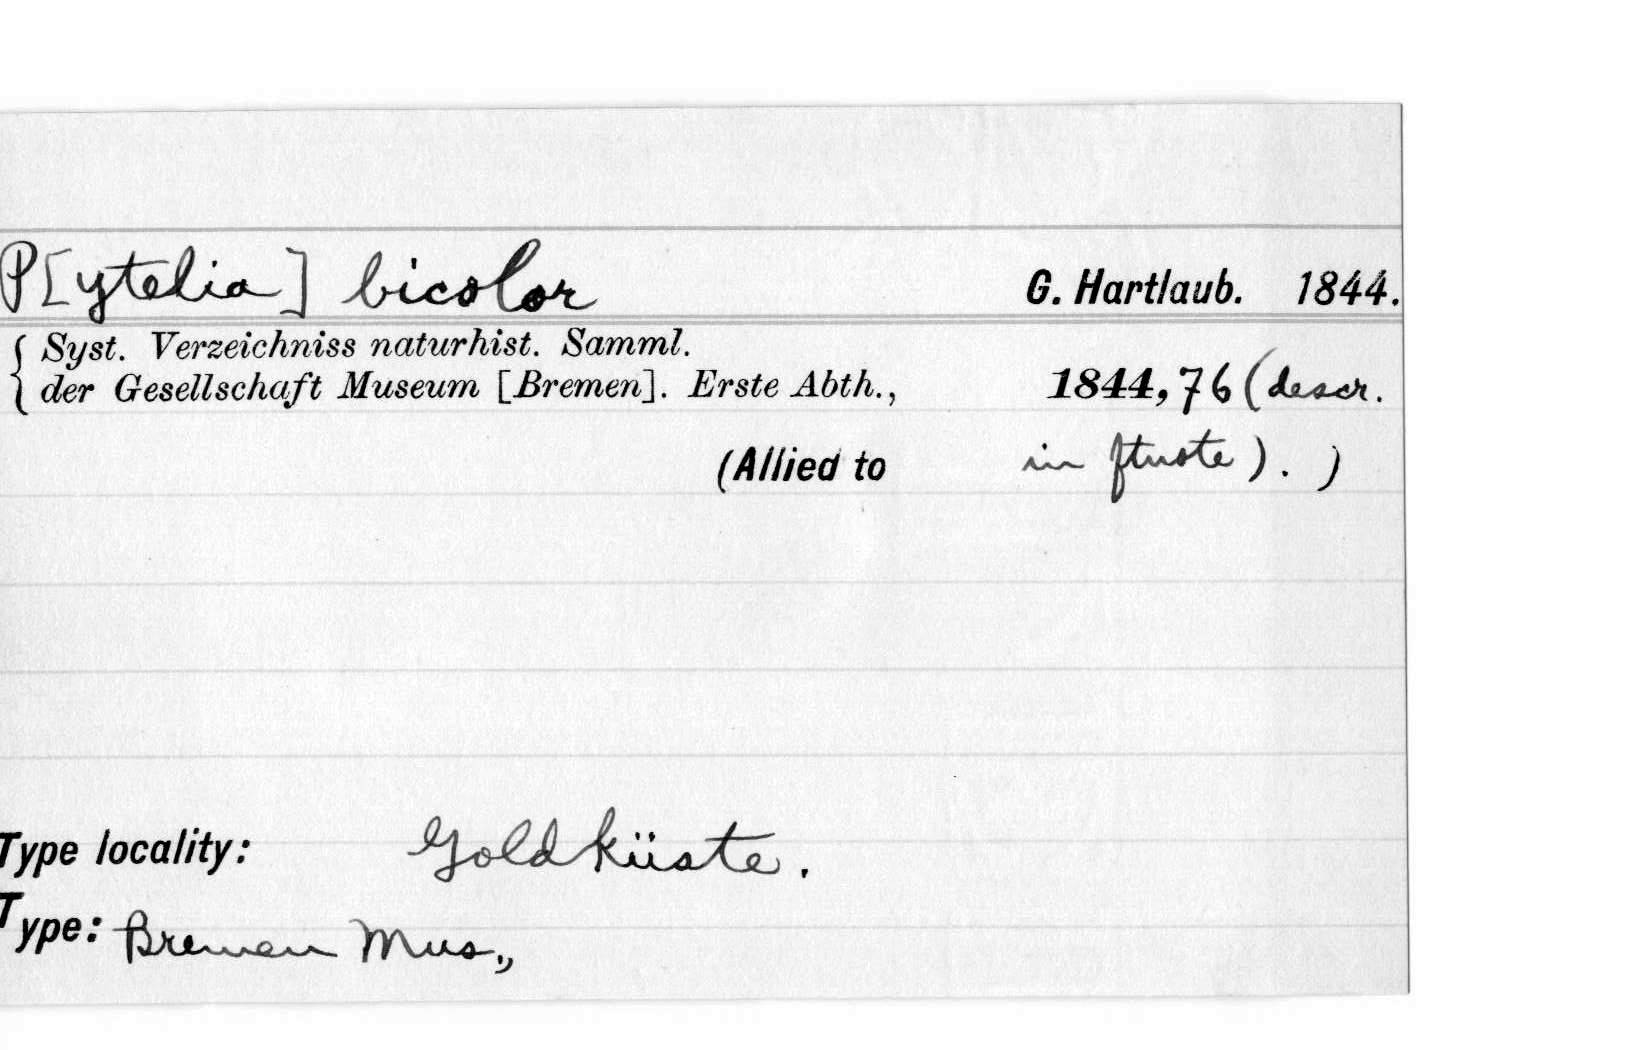 P[ytelia] bicolor G. Hartlaub. 1844.
Syst. Verzeichniss naturhist. Samml.
der Gesellschaft Museum [Bremen]. Erste Abth., 1844, 76 (descr.
(Allied to in ftnote). )
Type locality: Goldküste.
Type: Bremen Mus.,